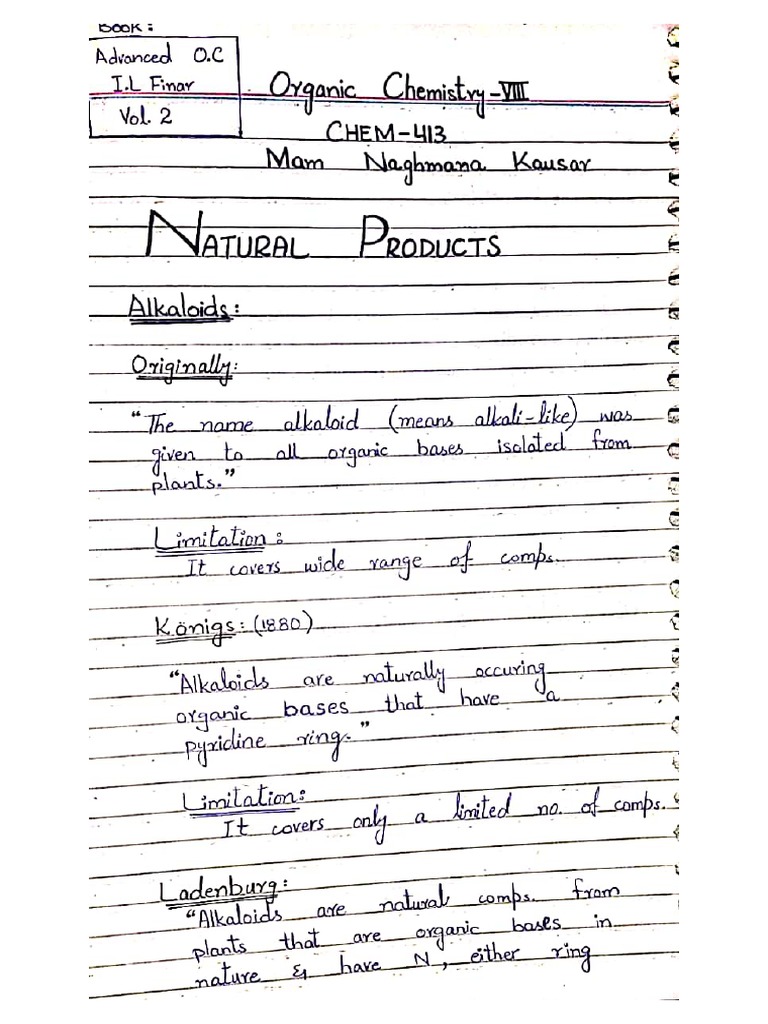 Book:
Advanced O.C
I.L Finar
Vol. 2
Organic Chemistry-VIII
CHEM-413
Mam Naghmana Kausar
NATURAL PRODUCTS
Alkaloids:
Originally:
"The name alkaloid (means alkali-like) was
given to all organic bases isolated from
plants."
Limitation:
It covers wide range of comps.
Königs: (1880)
"Alkaloids are naturally occuring
organic bases that have a
pyridine ring."
Limitation:
It covers only a limited no. of comps.
Ladenburg:
"Alkaloids are natural comps. from
plants that are organic bases in
nature & have N, either ring